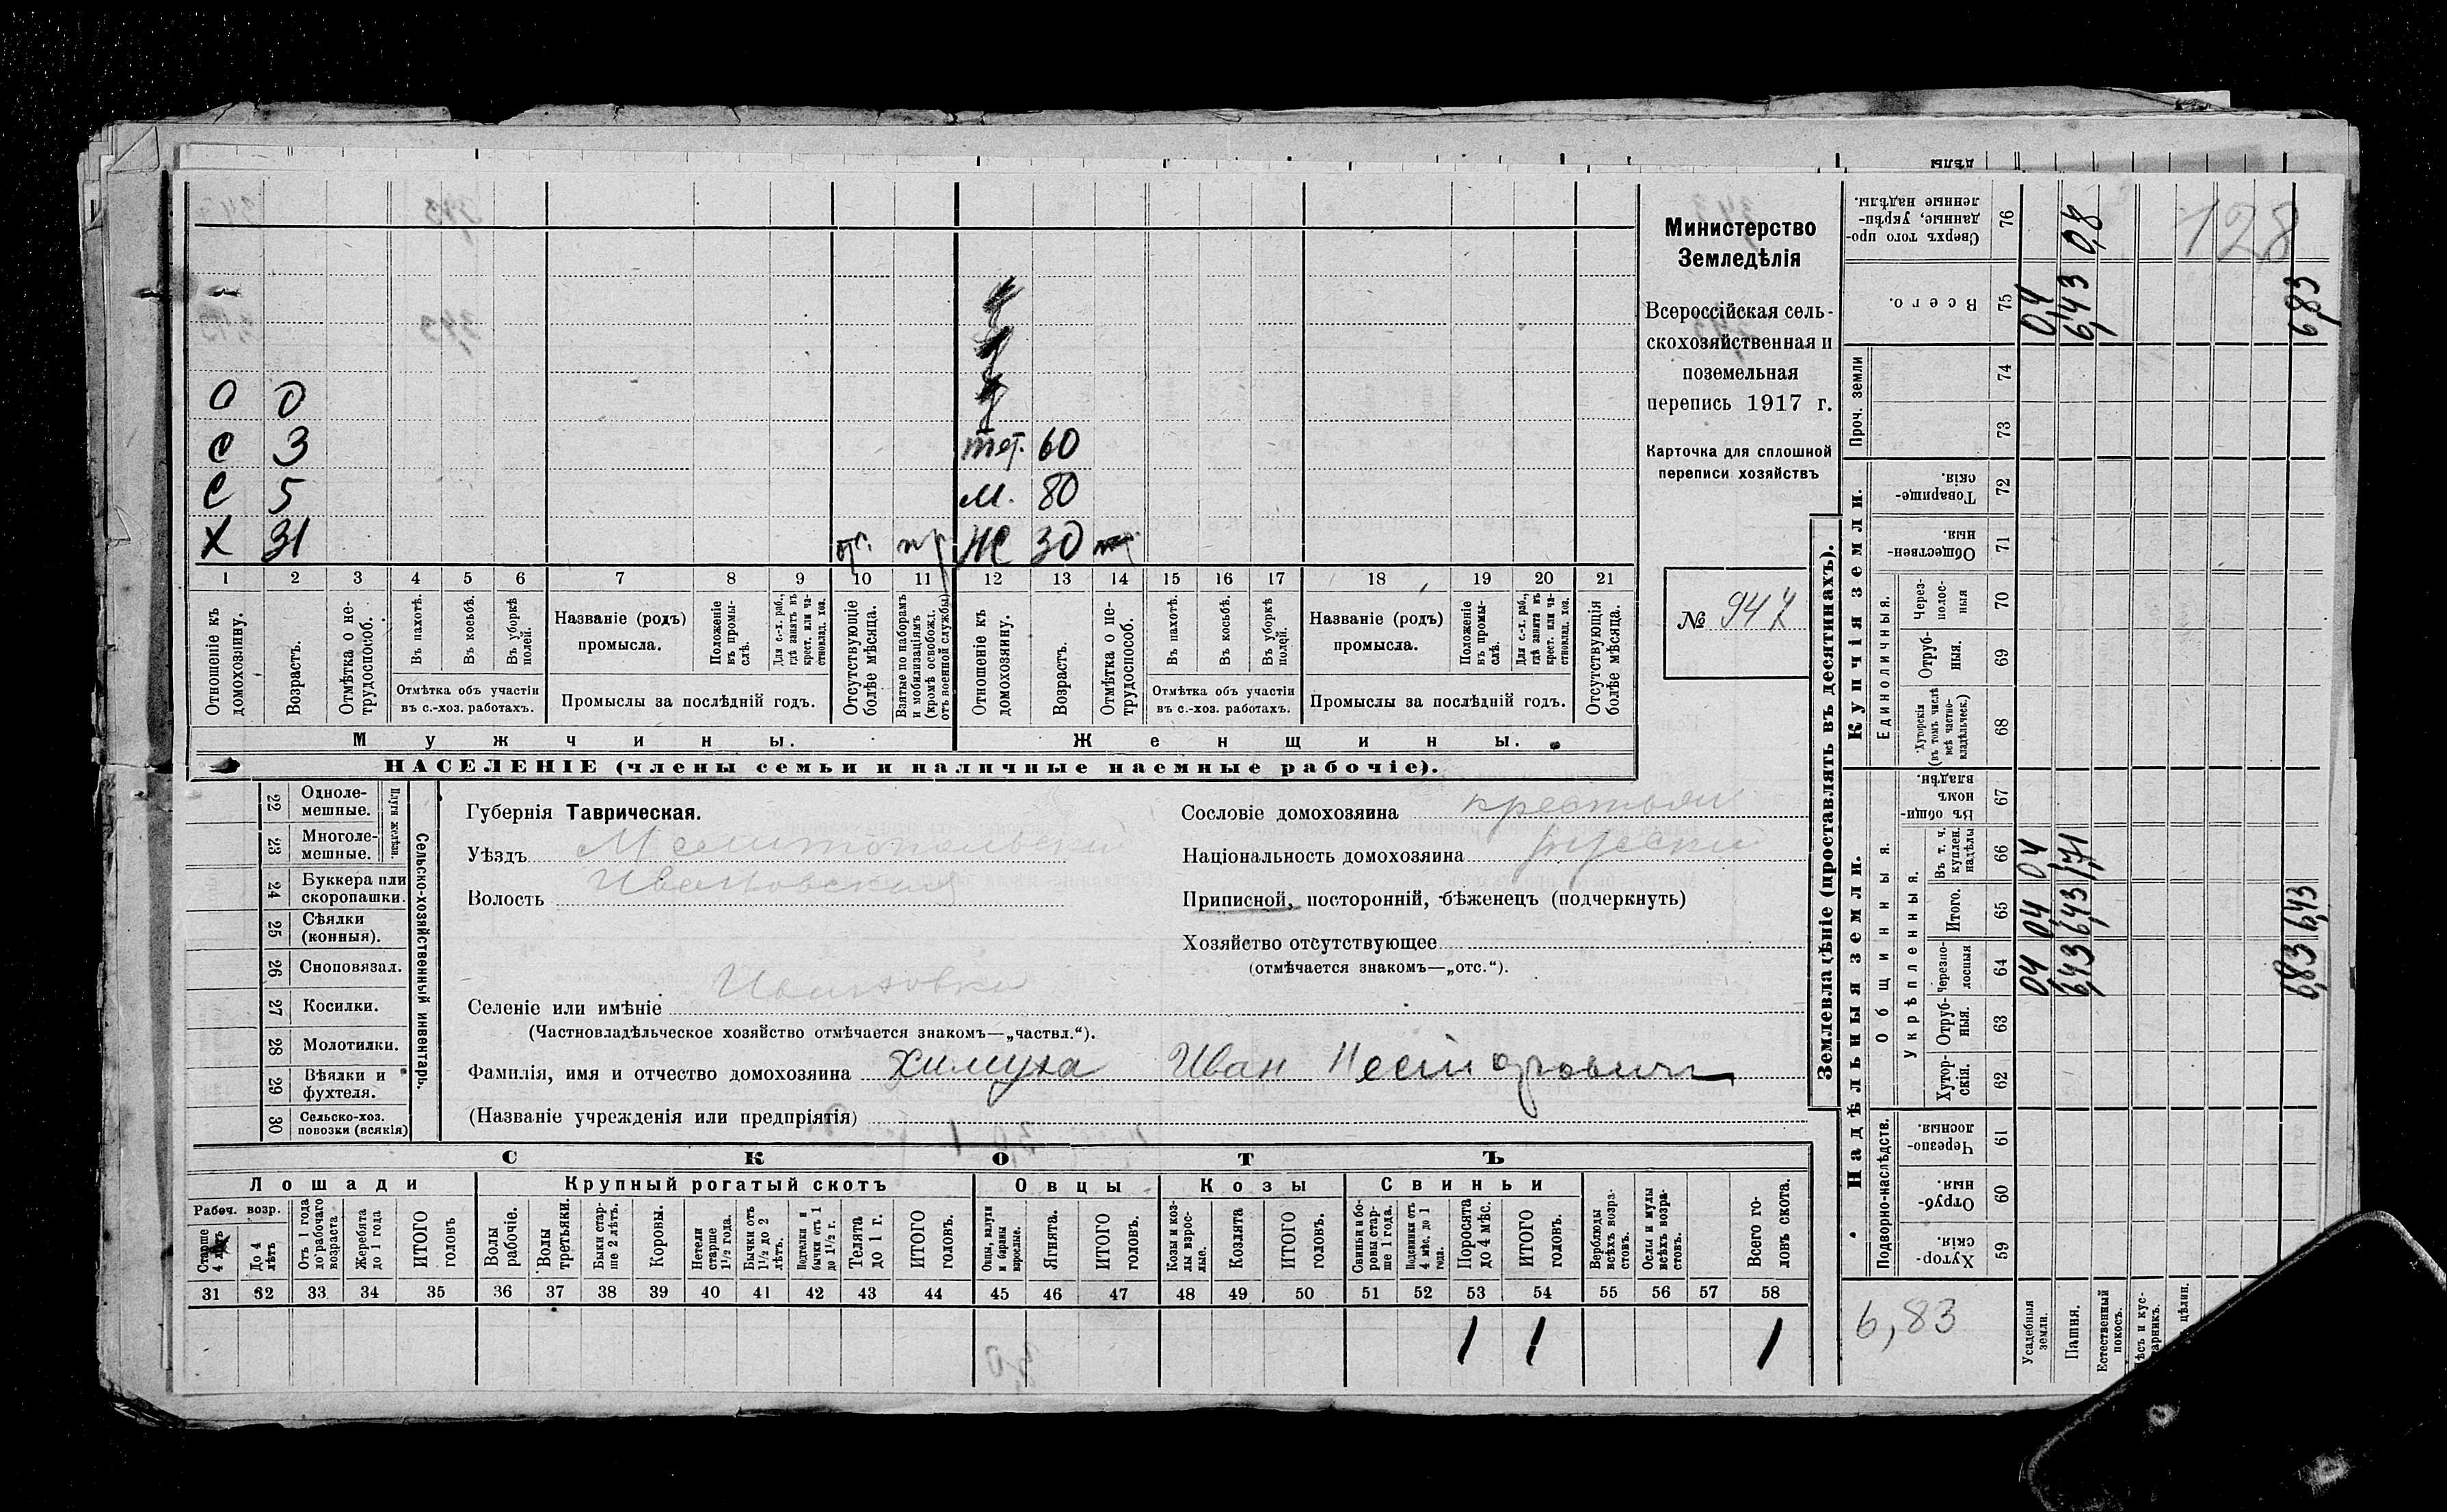 О 0
С 3 тет. 60
С 5 м. 80
Х 31 от. пр Ж 30
1 2 3 4 5 6 7 8 9 10 11 12 13 14 15 16 17 18 19 20 21
Отношеніе къ домохозяину.
Возрастъ.
Отмѣтка о нетрудоспособ.
Въ пахотѣ.
Въ косьбѣ.
Въ уборкѣ полей.
Отмѣтка объ участіи въ с.-хоз. работахъ.
Названіе (родъ) промысла.
Положеніе въ промыслѣ.
Для с.-х. раб., гдѣ занятъ въ крест. или частновлад. хоз.
Промыслы за послѣдній годъ.
Отсутствующіе болѣе мѣсяца.
Взятые по наборамъ и мобилизаціямъ (кромѣ освобожд. отъ военной службы)
Отношеніе къ домохозяину.
Возрастъ.
Отмѣтка о нетрудоспособ.
Въ пахотѣ.
Въ косьбѣ.
Въ уборкѣ полей.
Отмѣтка объ участіи въ с.-хоз. работахъ.
Названіе (родъ) промысла.
Положеніе въ промыслѣ.
Для с.-х. раб., гдѣ занята въ крест. или частновлад. хоз.
Промыслы за послѣдній годъ.
Отсутствующія болѣе мѣсяца.
Мужчины. Женщины.
НАСЕЛЕНІЕ (члены семьи и наличные наемные рабочіе).
Министерство
Земледѣлія
Всероссійская сель-
скохозяйственная и
поземельная
перепись 1917 г.
Карточка для сплошной
переписи хозяйствъ
№ 947
22 Одноле-
мешные.
23 Многоле-
мешные.
Плуги желѣзн.
24 Буккера или
скоропашки.
25 Сѣялки
(конныя).
26 Сноповязал.
27 Косилки.
28 Молотилки.
29 Вѣялки и
фухтеля.
30 Сельско-хоз.
повозки (всякія)
Сельско-хозяйственный инвентарь.
Губернія Таврическая.
Уѣздъ Мелитопольскій
Волость Ивановская
Селеніе или имѣніе Ивановка
(Частновладѣльческое хозяйство отмѣчается знакомъ—„частвл.“).
Фамилія, имя и отчество домохозяина Химуха Иван Несторович
(Названіе учрежденія или предпріятія)
Сословіе домохозяина крестьян
Національность домохозяина русски
Приписной, посторонній, бѣженецъ (подчеркнуть)
Хозяйство отсутствующее
(отмѣчается знакомъ—„отс.“).
СКОТЪ
Лошади Крупный рогатый скотъ Овцы Козы Свиньи
Рабоч. возр.
Старше 4 лѣтъ
До 4 лѣтъ
Отъ 1 года до рабочаго возраста
Жеребята до 1 года
ИТОГО головъ
Волы рабочіе.
Волы третьяки.
Быки старше 2 лѣтъ.
Коровы.
Нетели старше 1½ года.
Бычки отъ 1½ до 2 лѣтъ.
Подтелки и бычки отъ 1 до 1½ г.
Телята до 1 г.
ИТОГО головъ.
Овцы, валухи и бараны взрослые.
Ягнята.
ИТОГО головъ.
Козы и козлы взрослые.
Козлята
ИТОГО головъ.
Свиньи и боровы старше 1 года.
Подсвинки отъ 4 мѣс. до 1 года.
Поросята до 4 мѣс.
ИТОГО головъ.
Верблюды всѣхъ возрастовъ.
Ослы и мулы всѣхъ возрастовъ.
Всего головъ скота.
31 32 33 34 35 36 37 38 39 40 41 42 43 44 45 46 47 48 49 50 51 52 53 54 55 56 57 58
1 1 1
Землевладѣніе (проставлять въ десятинахъ).
Надѣльныя земли. Купчія земли. Проч. земли
Подворно-наслѣдств.
Общинныя.
Укрѣпленныя.
Единоличныя.
Сверхъ того проданные, укрѣпленные надѣлы. 76 0,8
128
Всего. 75 0,4 6,43 6,83
74
73
Товарищескія. 72
Общественныя. 71
Черезполосныя 70
Отрубныя. 69
Хуторскія (въ томъ числѣ всѣ частновладѣльческ.) 68
Въ общинномъ владѣн. 67
Въ т. ч. куплен. надѣлы 66 04 1,71
Итого. 65 04 6,43 6,43
Черезполосныя 64 04 6,43 6,83
Отрубныя. 63
Хуторскія. 62
Черезполосныя. 61
Отрубныя. 60
Хуторскія. 59
6,83
Усадебныя земли.
Пашня.
Естественный покосъ.